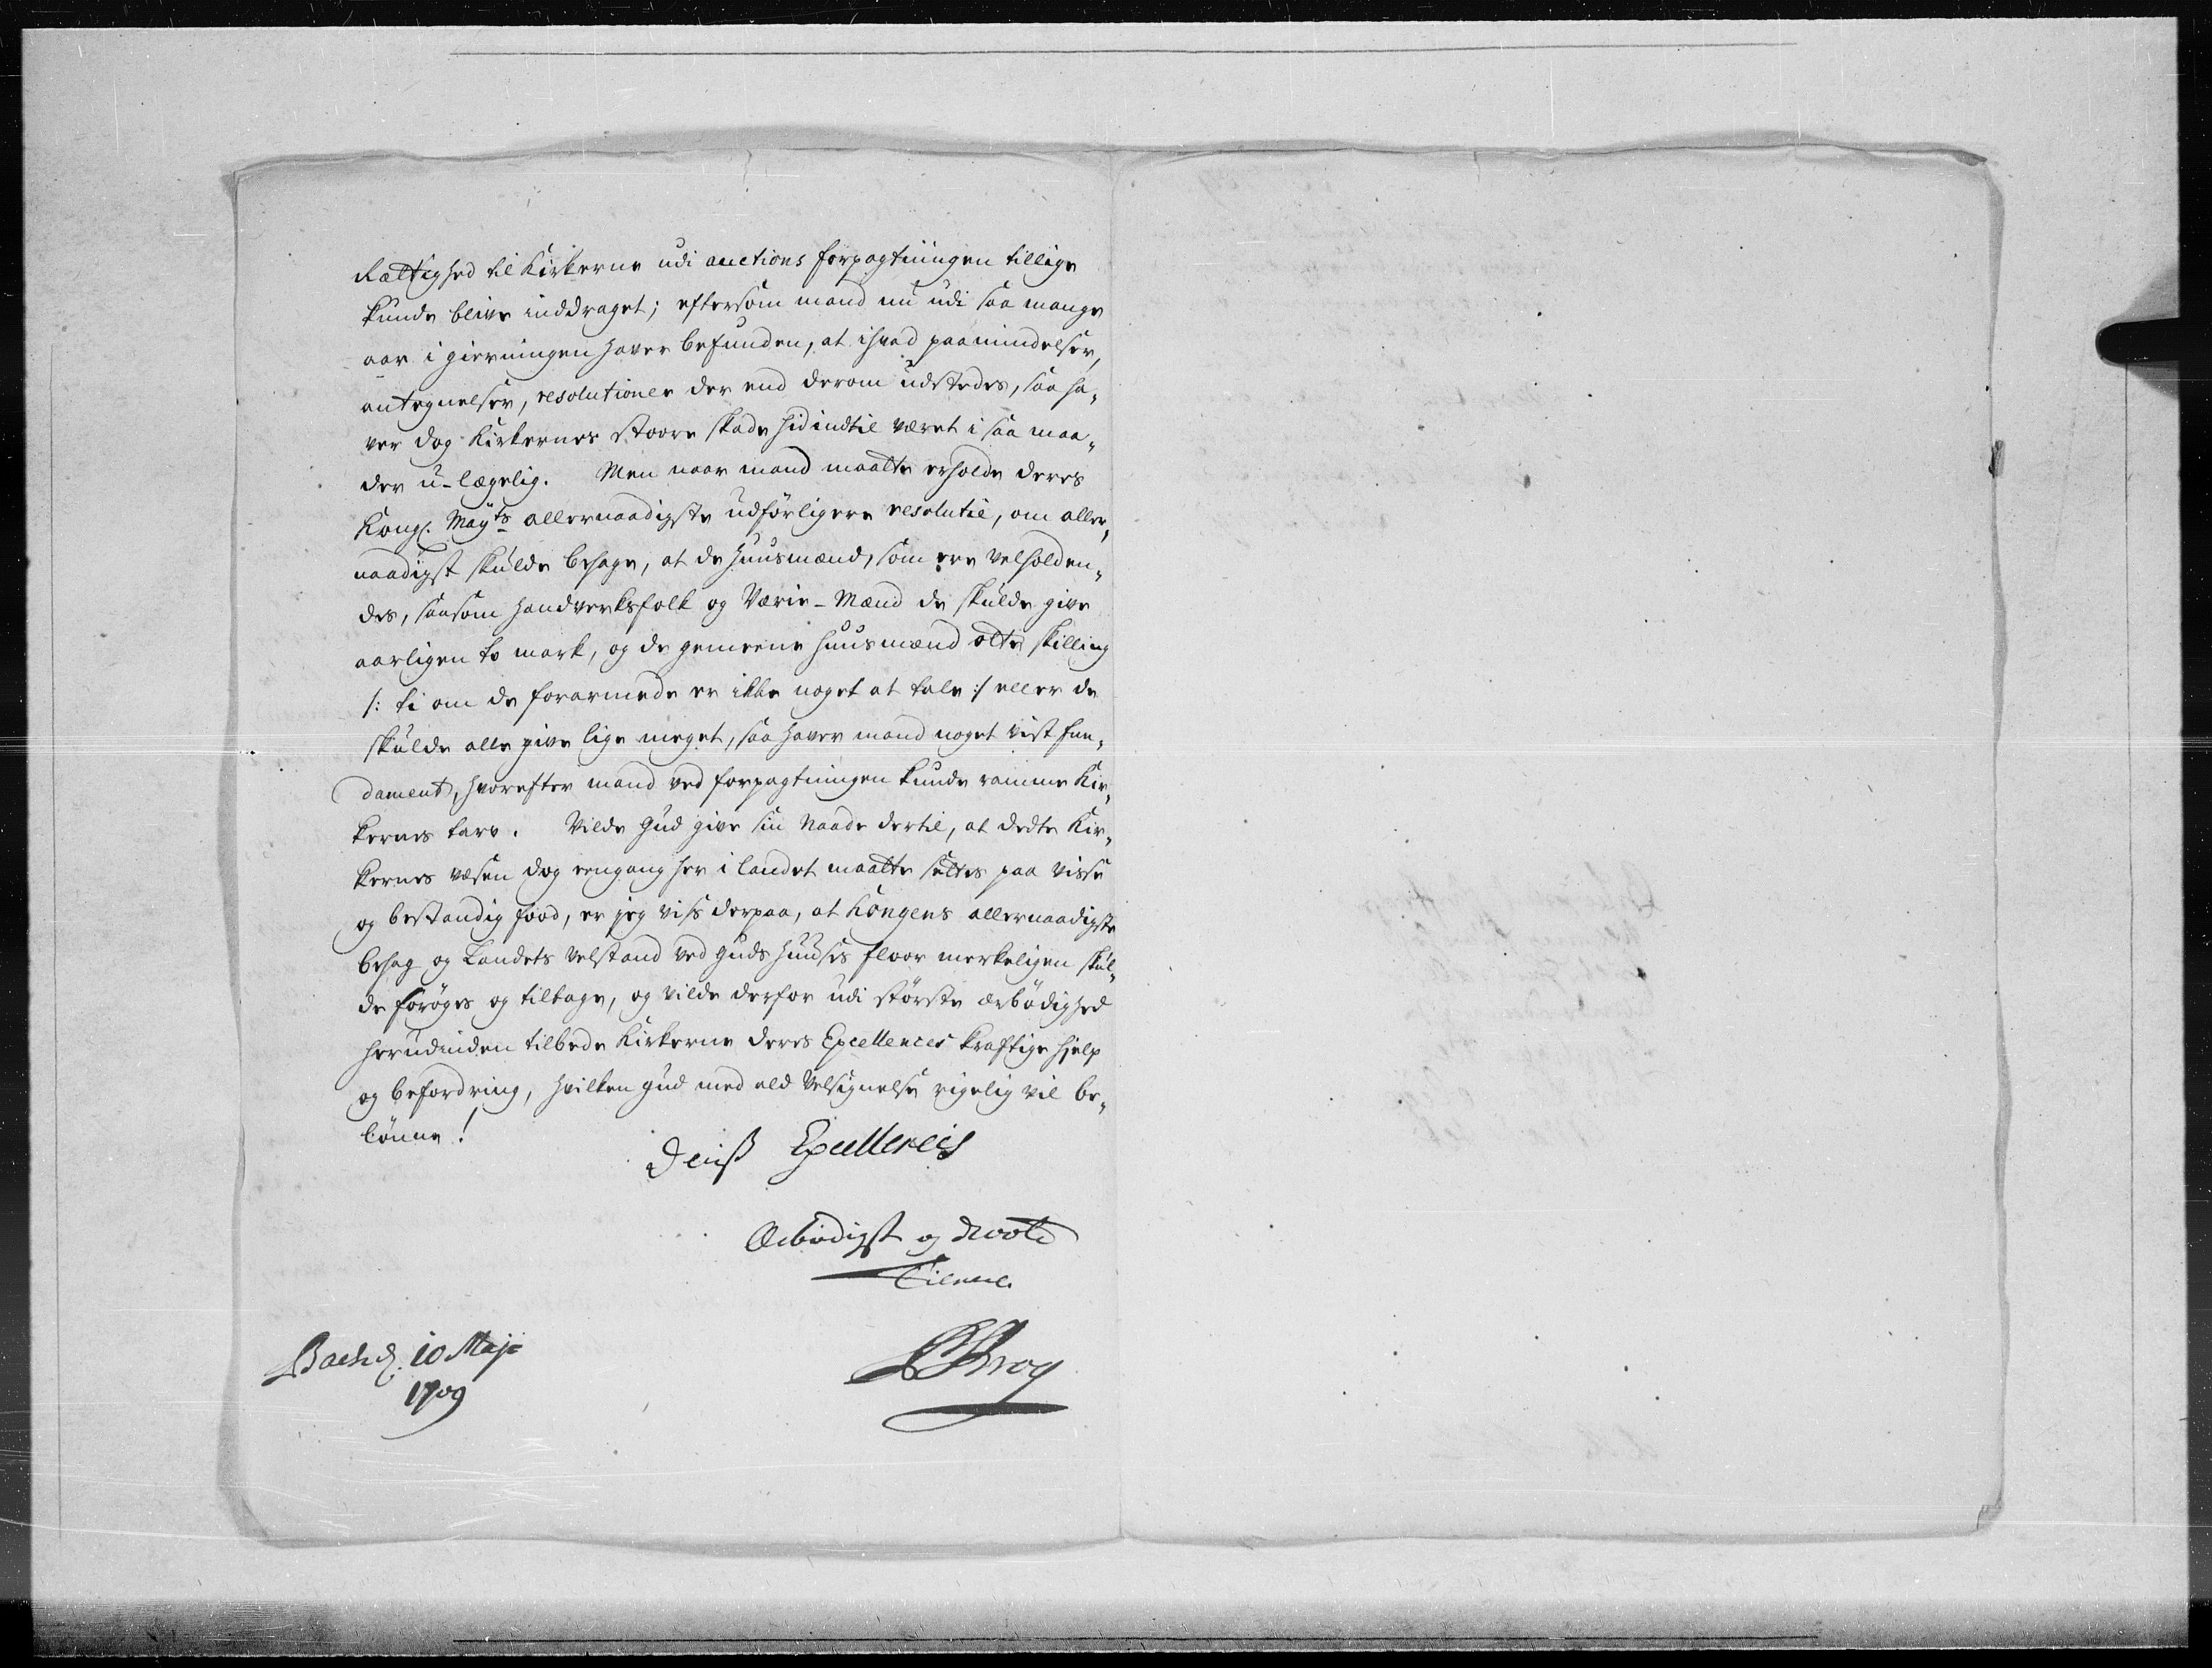 Rættighed til Kirkerne udi auctions forpagtningen tillige
kunde blive inddraget; eftersom mand nu udi saa mange
aar i gierningen haver befunden, at ihvad paamindelser,
antegnelser, resolutioner der end derom udstedes, saa ha„
ver dog Kirkernes stoore skade hid indtil været i saa maa„
der u-lægelig. Men naar mand maatte erholde deres
Kongl. Mayts allernaadigste udförligere resolutie, om aller„
naadigst skulde behage, at de huusmænd, som ere velholden„
des, saasom handverksfolk og Værie-Mænd de skulde give
aarligen to mark, og de gemeene huusmænd otte skilling
/: ti om de forarmede er ikke noget at tale :/ eller de
skulde alle give lige meget, saa haver mand noget vist fun„
dament, hvorefter mand ved forpagtningen kunde ramme Kir„
kernes tarv. Vilde Gud give sin Naade dertil, at dette Kir„
kernes væsen dog eengang her i landet maatte settes paa visse
og bestandig food, er jeg viss derpaa, at Kongens allernaadigste
behag og Landets velstand ved Guds huuses floor merkeligen skul„
de foröges og tiltage, og vilde derfor udi störste ærbödighed
herudinden tilbede Kirkerne deres Excellences kraftige hjelp
og befordring, hvilken Gud med ald Velsignelse rigelig vil be„
lönne!
Deris Excellences
Ærbödigst og
Tienere
10 Maji
1709